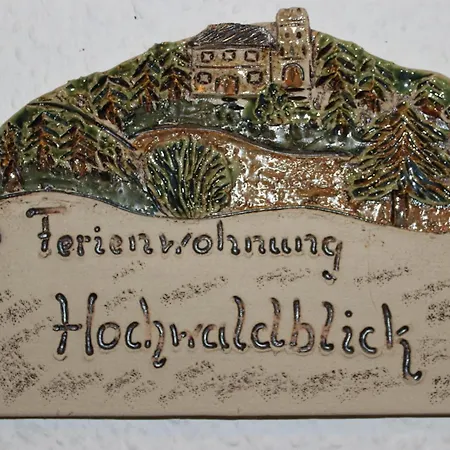 Ferienwohnung
Hochwaldblick